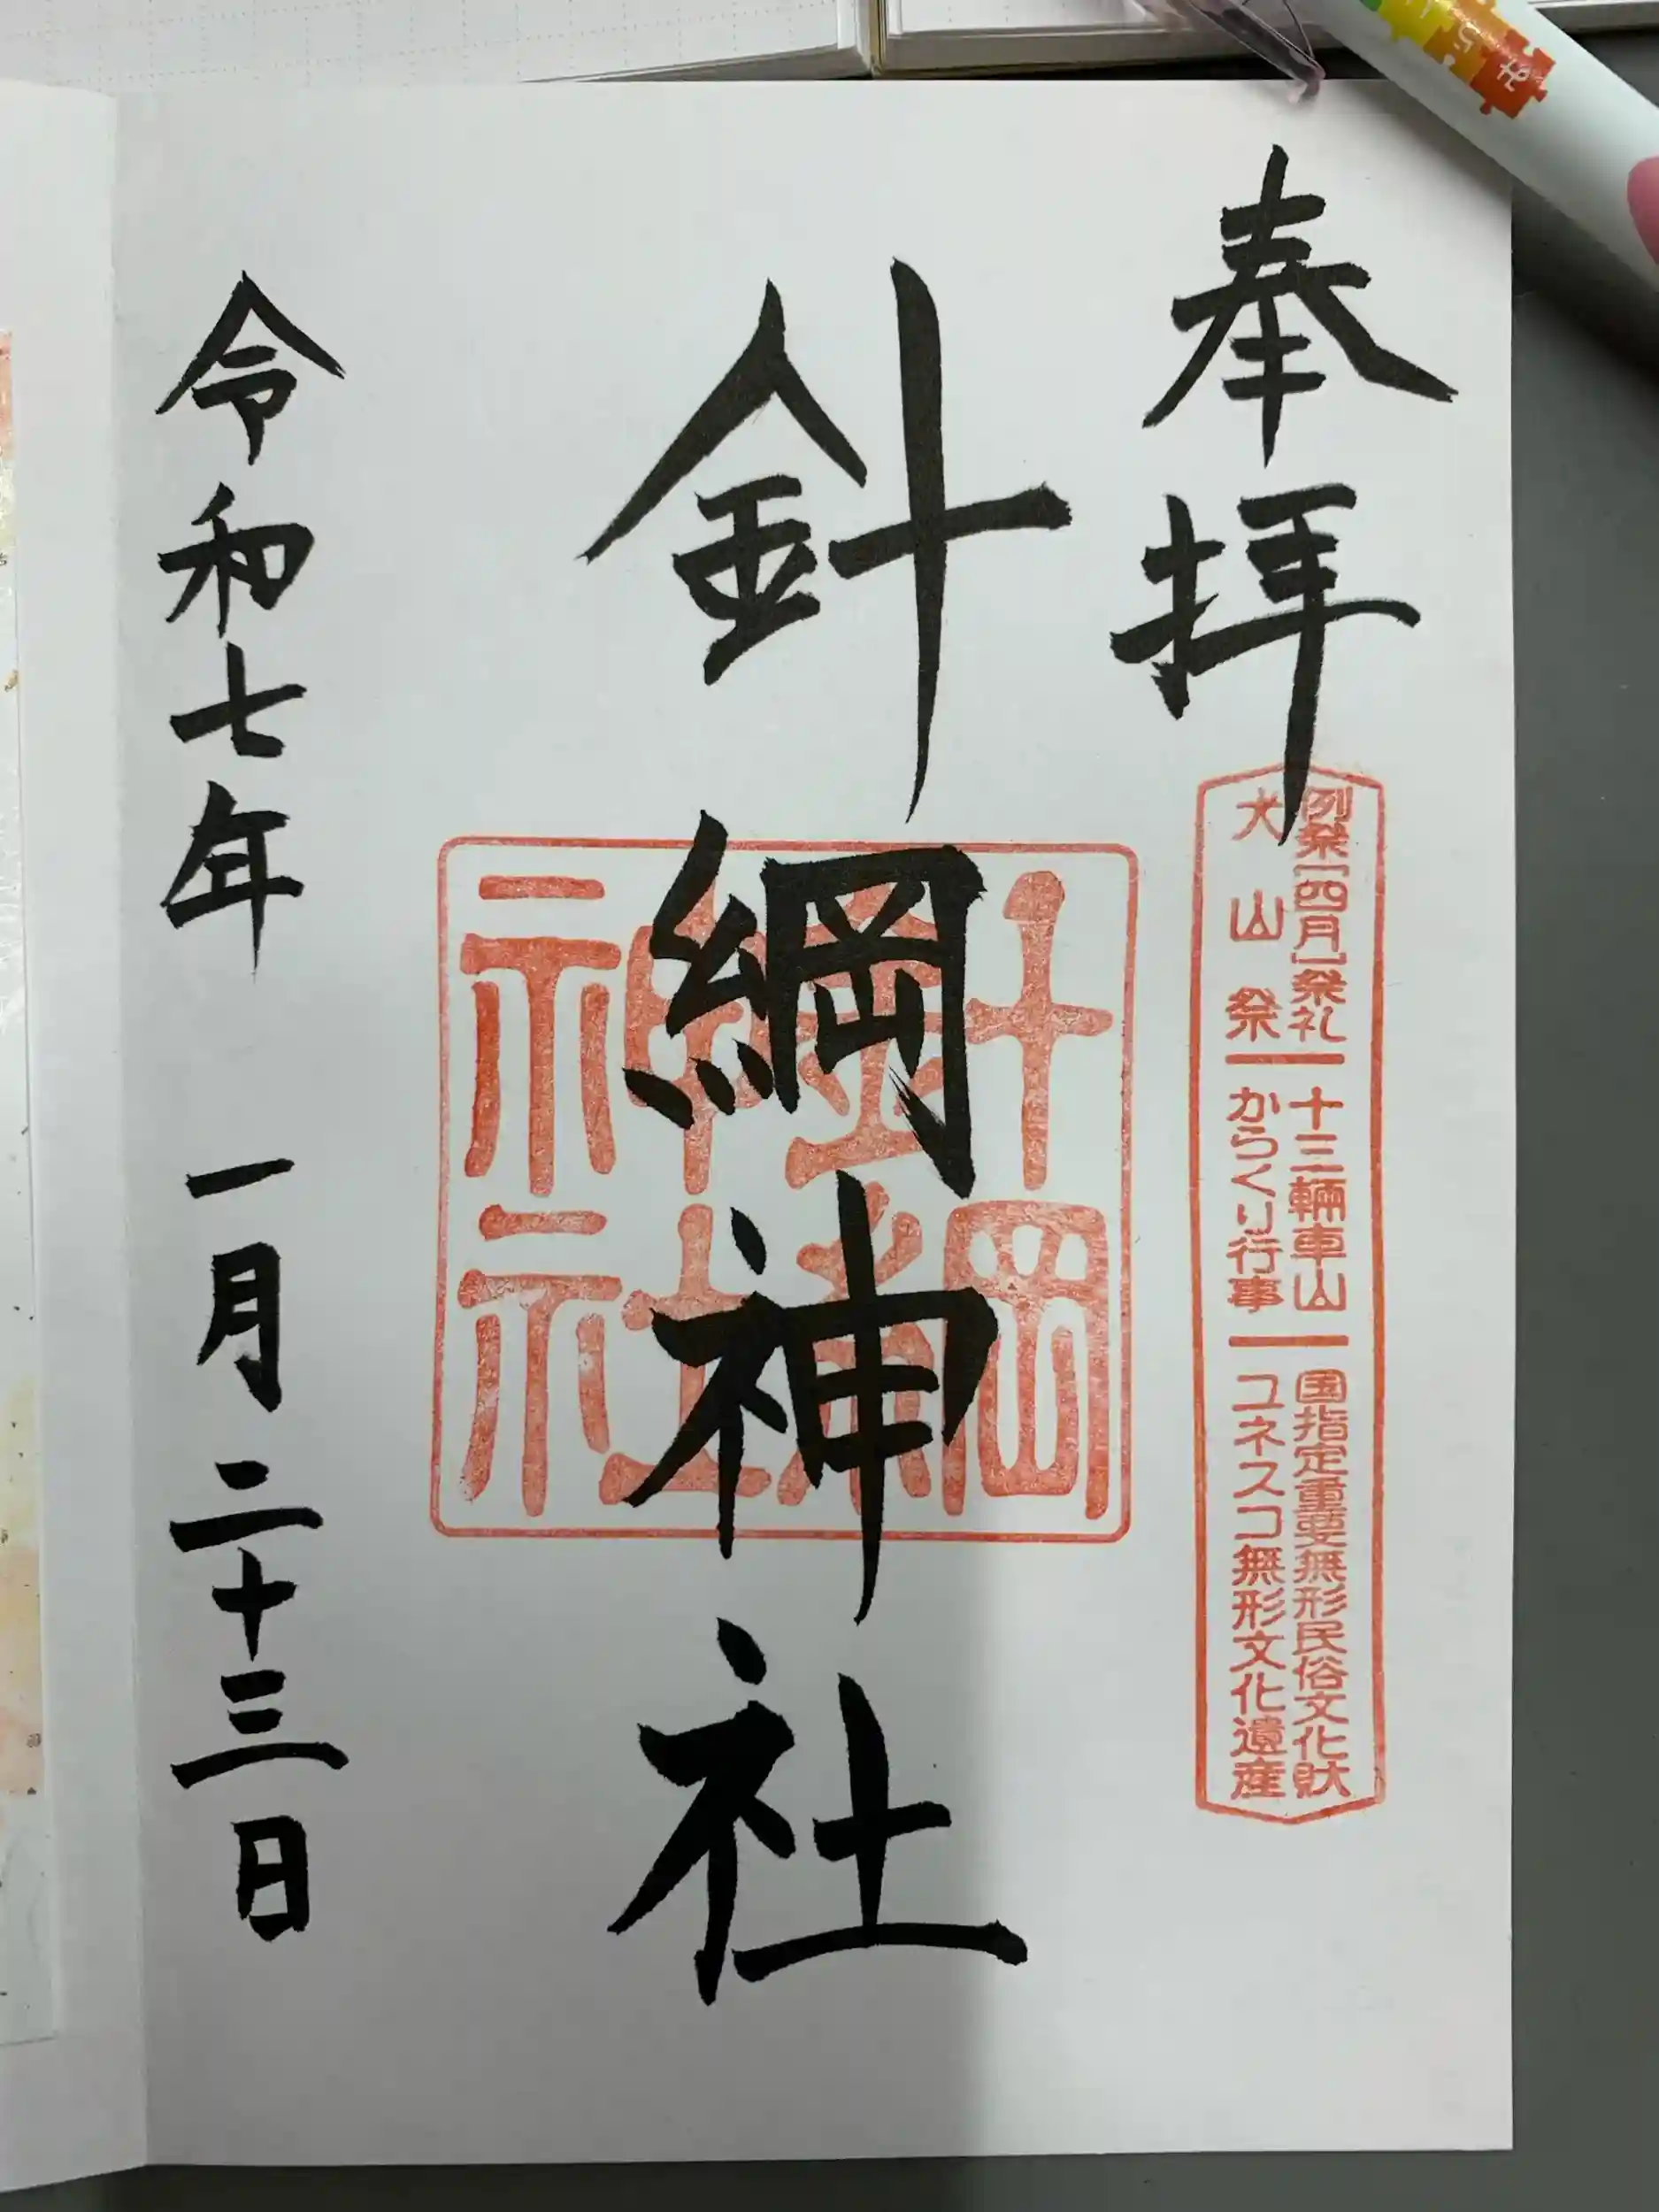 奉拝
例祭[四月]祭礼 十三輛車山 国指定重要無形民俗文化財
犬山祭 からくり行事 ユネスコ無形文化遺産
針綱神社
針綱
神社
令和七年 一月二十三日